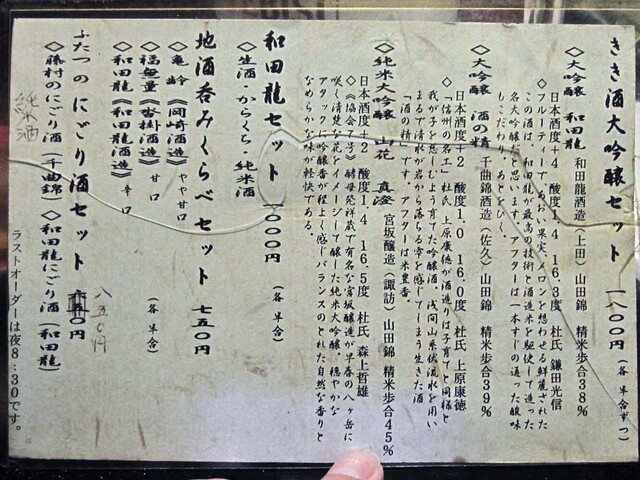 きき酒大吟醸セット 一八〇〇円
(各半合ずつ)
◇大吟醸 和田龍 和田龍酒造(上田)山田錦 精米歩合38%
日本酒度+4 酸度1.4 16.3度 杜氏 鎌田光信
◇フルーティーであおい果実、メロンを想わせる鮮麗された
この酒は、和田龍が最高の技術と酒造米を駆使して造った
名大吟醸だと思います。アフターは一本すじの通った酸味
じんわり、あとをひく。
◇大吟醸 酒の精 千曲錦酒造(佐久)山田錦 精米歩合39%
日本酒度+2 酸度1.0 16.0度 杜氏 上原康徳
◇「信州の名工」杜氏 上原康徳が酒造りは子育てと同様と
我が子を慈しむよう育てた吟醸酒。浅間山系伏流水を用い
まるで清水が岩から落ちる雫を感じてしまう生きた酒
「酒の精」です。アフターは米豊香。
◇純米大吟醸 山花 真澄 宮坂醸造(諏訪)山田錦 精米歩合45%
日本酒度+2 酸度1.4 16.5度 杜氏 森上哲雄
◇《協会7号》酵母発祥蔵で有名な宮坂醸造が早春の八ヶ岳に
咲く清楚な花をイメージして醸した純米大吟醸。穏やかな
アタックで吟醸香が程よく感じバランスのとれた自然な香りと
なめらかな味が軽快である。
和田龍セット 一〇〇〇円
(各半合)
◇生酒・からくち・純米酒
地酒呑みくらべセット 七五〇円
(各半合)
◇亀齢《岡崎酒造》やや甘口
◇福無量《沓掛酒造》甘口
◇和田龍《和田龍酒造》辛口
ふたつのにごり酒セット 八五〇円
◇藤村のにごり酒(千曲錦)◇和田龍にごり酒(和田龍)
純米酒
ラストオーダーは夜8:30です。